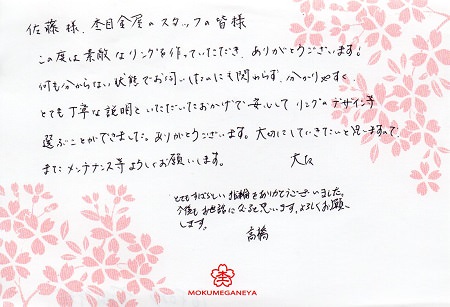 佐藤様、杢目金屋のスタッフの皆様
この度は素敵なリングを作っていただき、ありがとうございます！
何も分からない状態でお伺いしたのにも関わらず、分かりやすく、
とても丁寧な説明をいただいたおかげで安心して リングのデザイン等
選ぶことができました。ありがとうございます。大切にしていきたいと思いますので
またメンテナンス等よろしくお願いします。
とてもすばらしい指輪をありがとうございました。
今後もお世話になると思います、よろしくお願い
します。
高橋
MOKUMEGANEYA